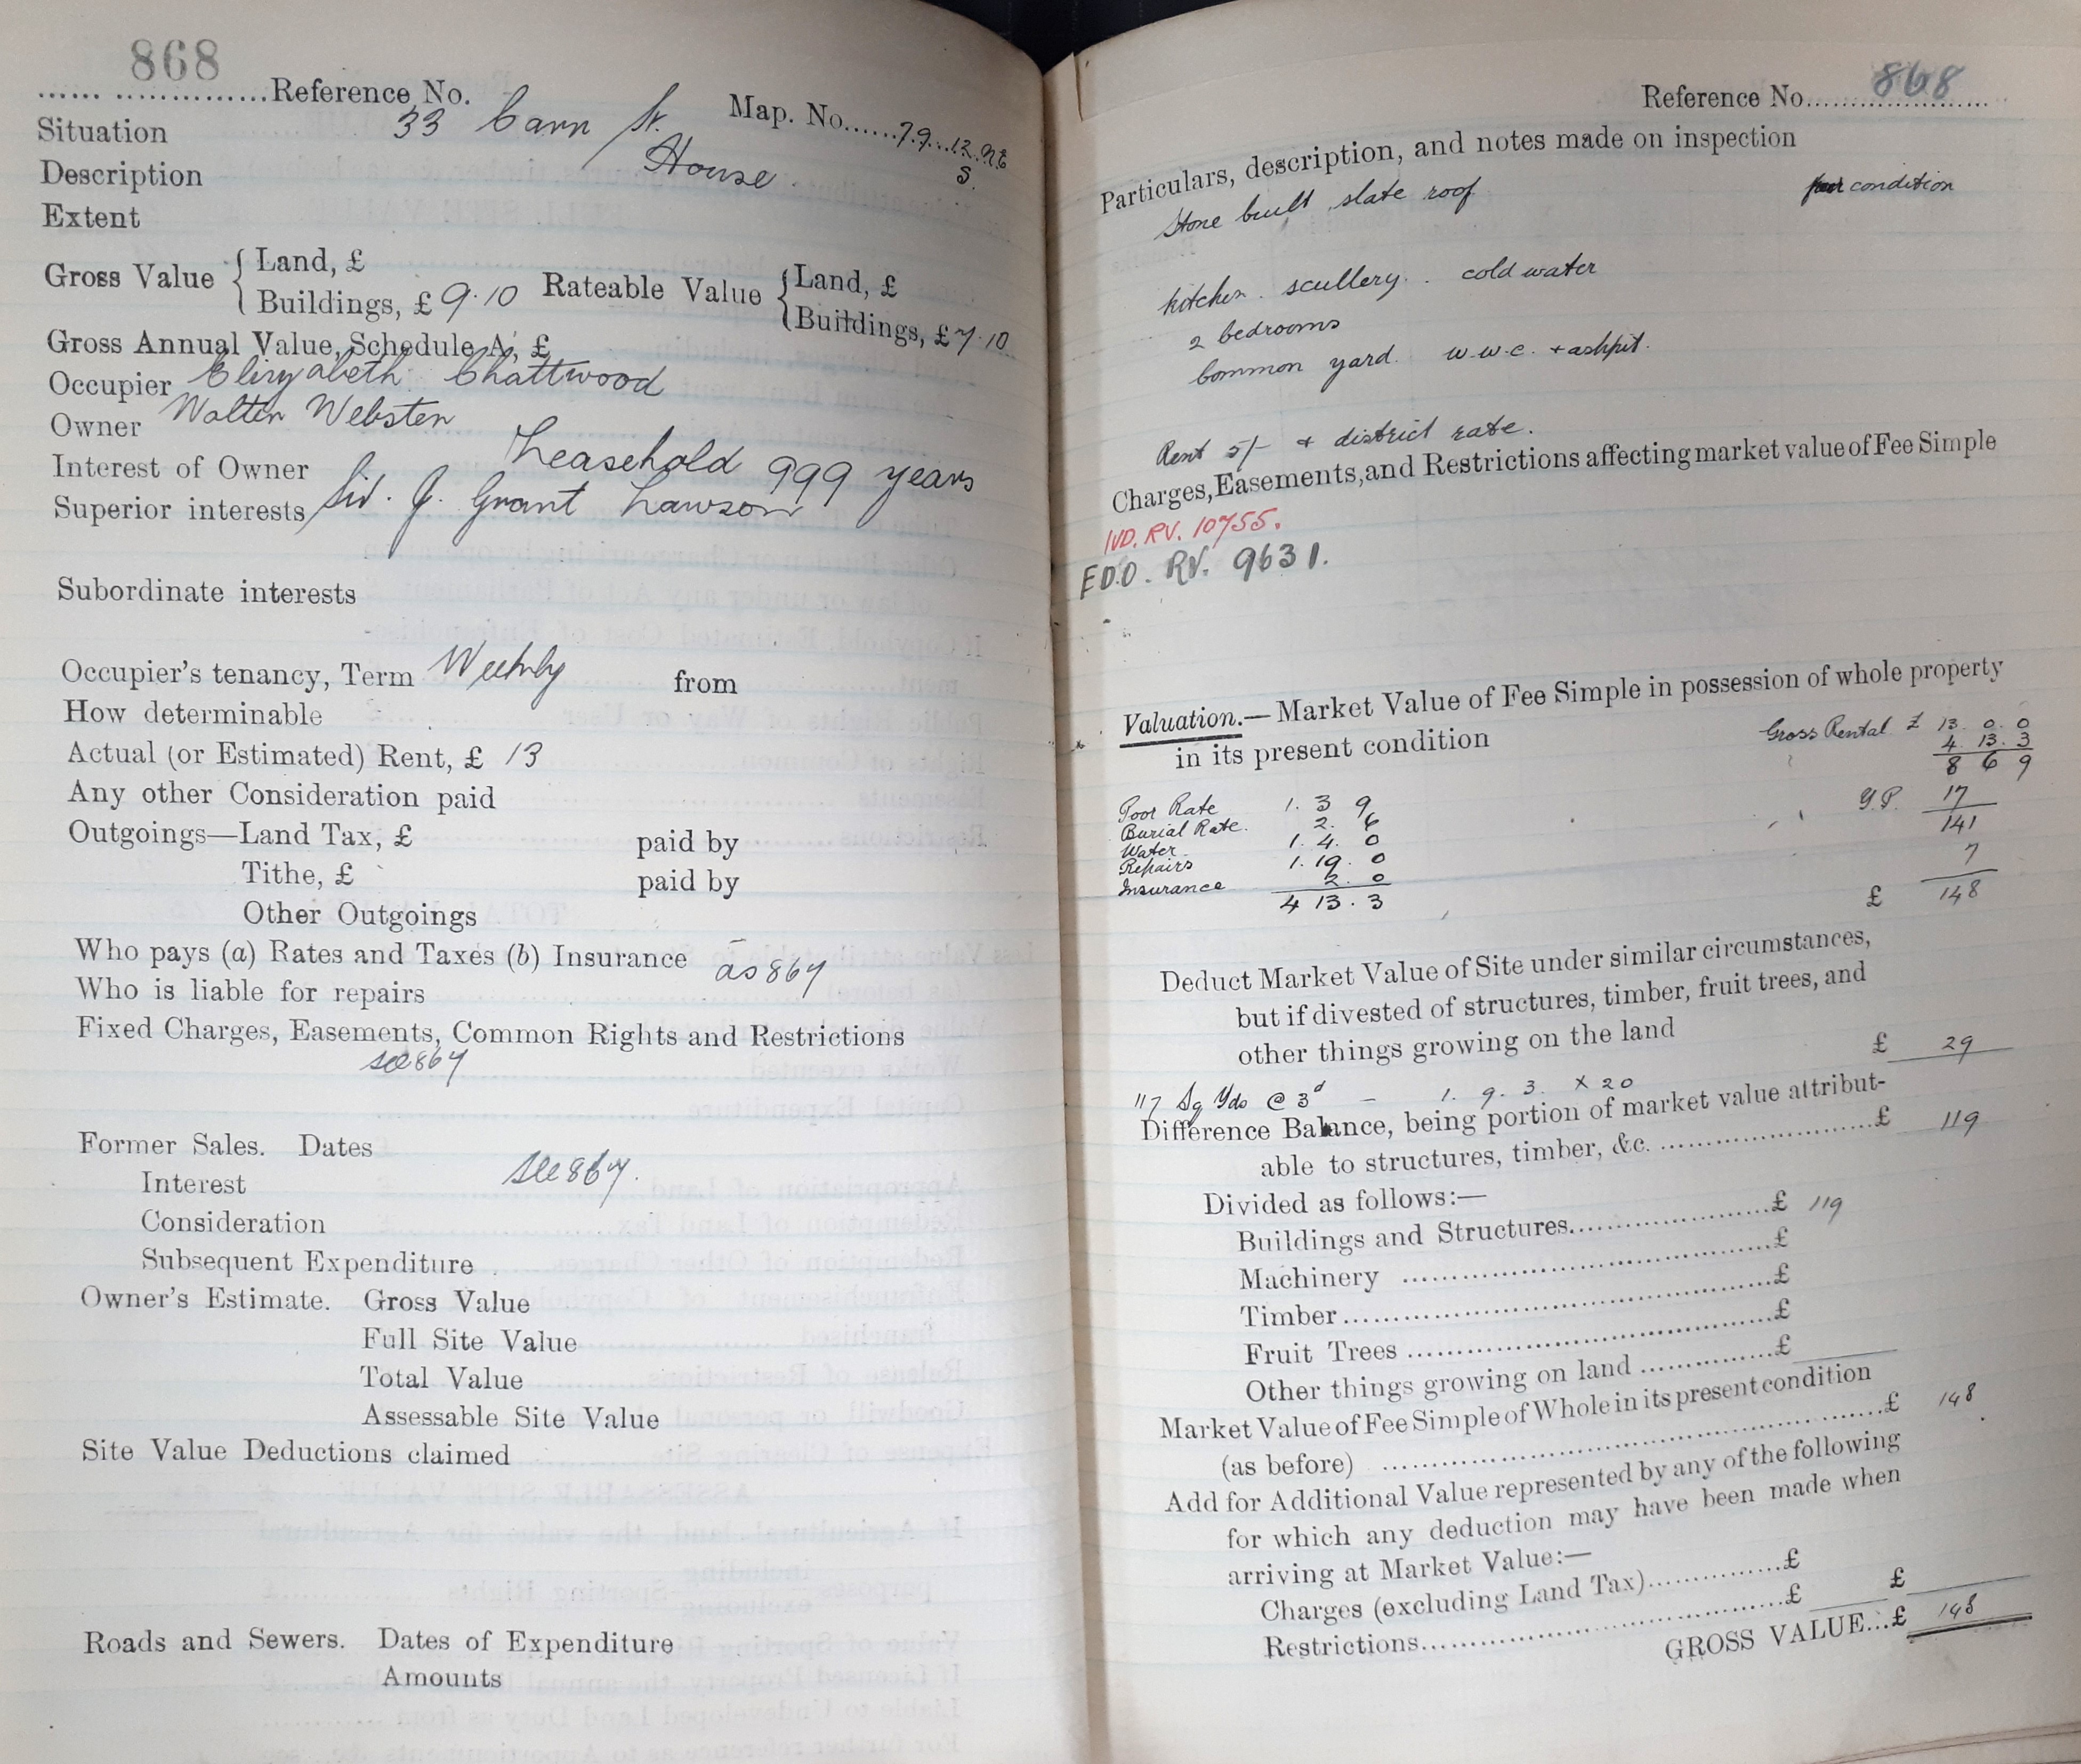 868
...... ...............Reference No.
Map. No......79...12.NE
S.
Situation 33 Carr St.
Description House.
Extent
Gross Value { Land, £
Buildings, £ 9.10
Rateable Value { Land, £
Buildings, £ 7.10
Gross Annual Value, Schedule A, £
Occupier Elizabeth Chattwood
Owner Walter Webster
Interest of Owner Leasehold 999 years
Superior interests Sir. J. Grant Lawson
Subordinate interests
Occupier's tenancy, Term Weekly from
How determinable
Actual (or Estimated) Rent, £ 13
Any other Consideration paid
Outgoings—Land Tax, £ paid by
Tithe, £ paid by
Other Outgoings
Who pays (a) Rates and Taxes (b) Insurance as 867
Who is liable for repairs
Fixed Charges, Easements, Common Rights and Restrictions
see 867
Former Sales. Dates
Interest see 867.
Consideration
Subsequent Expenditure
Owner's Estimate. Gross Value
Full Site Value
Total Value
Assessable Site Value
Site Value Deductions claimed
Roads and Sewers. Dates of Expenditure
Amounts
Reference No. 868
Particulars, description, and notes made on inspection
Stone built slate roof condition
kitchen. scullery. cold water
2 bedrooms
common yard. w.w.c. + ashpit.
Rent 5/- + district rate.
Charges, Easements, and Restrictions affecting market value of Fee Simple
IVD. RV. 10755.
EDO. RV. 9631.
Valuation.—Market Value of Fee Simple in possession of whole property
in its present condition
Gross Rental £ 13. 0. 0
4. 13. 3
8 6 9
Y.P. 17
141
7
£ 148
Poor Rate 1. 3 9
Burial Rate. 2. 6
Water 1. 4. 0
Repairs 1. 19. 0
Insurance 2. 0
4 13. 3
Deduct Market Value of Site under similar circumstances,
but if divested of structures, timber, fruit trees, and
other things growing on the land £ 29
117 Sq Yds @ 3d - 1. 9. 3. x 20
Difference Balance, being portion of market value attribut-
able to structures, timber, &c. ........................£ 119
Divided as follows:—
Buildings and Structures......................£ 119
Machinery ........................................£
Timber................................................£
Fruit Trees .........................................£
Other things growing on land ...............£
Market Value of Fee Simple of Whole in its present condition
(as before) ................................................£ 148
Add for Additional Value represented by any of the following
for which any deduction may have been made when
arriving at Market Value:—
Charges (excluding Land Tax)...............£
Restrictions.......................................£ £
GROSS VALUE...£ 148